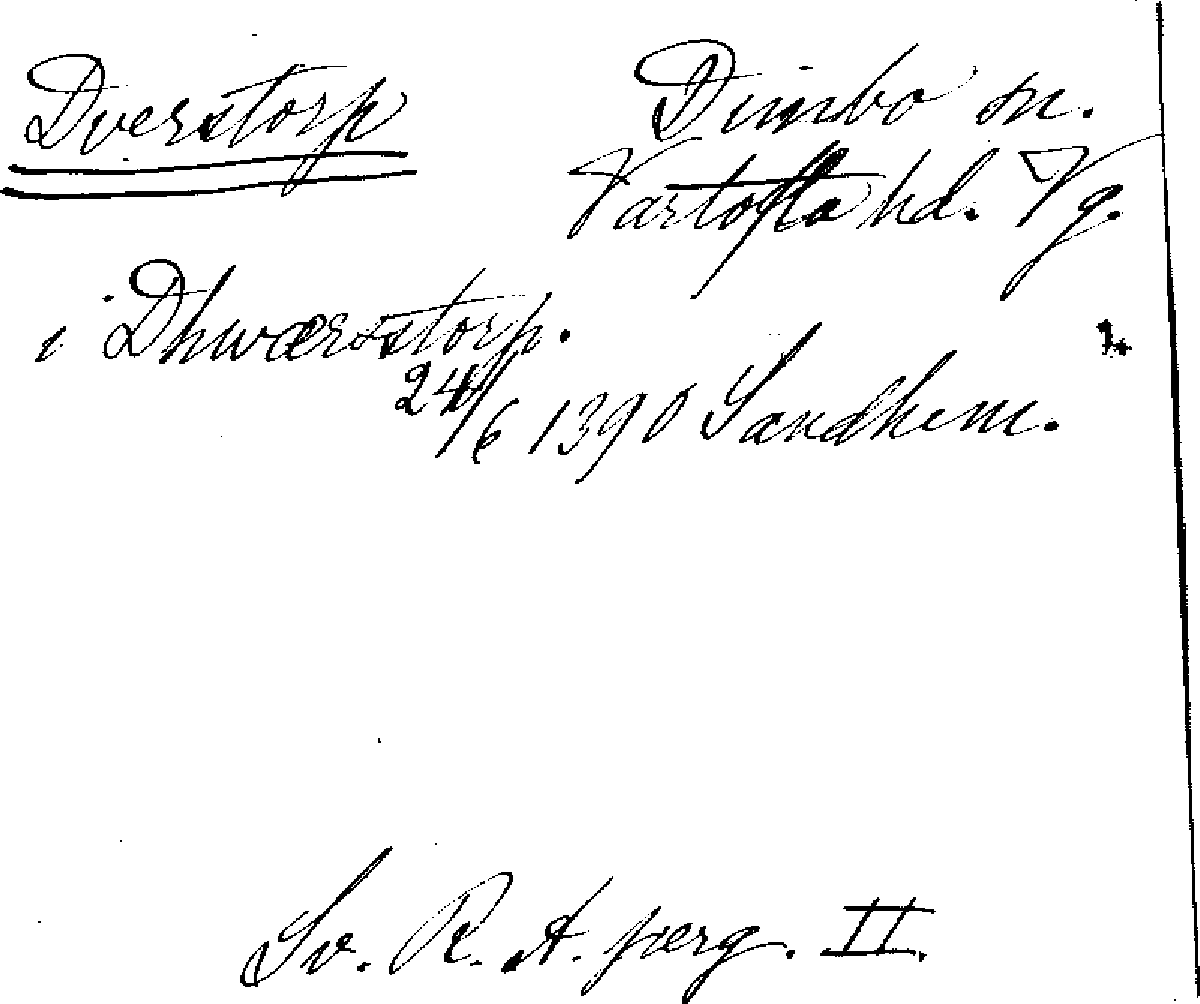 Dverstorp
Dimbo sn.
Vartofta hd. Vg.
i Dhwærsstorp.
24/6 1390 Sandhem.
Sv. R. A. perg. II.